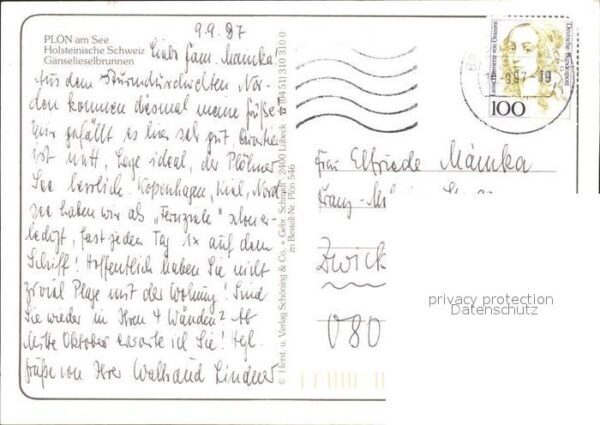 PLÖN am See
Holsteinische Schweiz
Gänselieselbrunnen
9.9.97
Liebe Fam. Mámka!
Aus dem sturmdurchwehten Nor-
den kommen diesmal meine Grüße.
Mir gefällt es hier sehr gut, Quartier
ist nett, Lage ideal, der Plöner
See herrlich. Kopenhagen, Kiel, Nord-
see haben wir als "Fernziele" schon er-
ledigt, fast jeden Tag 1x auf dem
Schiff! Hoffentlich haben Sie nicht
zuviel Plage mit der Wohnung! Sind
Sie wieder in Ihren 4 Wänden? Ab
Mitte Oktober erwarte ich Sie! Hzl.
Grüße von Ihrer Waltraud Lindner
© Herst. u. Verlag Schöning & Co. + Gebr. Schmidt, 2400 Lübeck ☎ (04 51) 310 310 0
zu Bestell-Nr. Plön 546
Deutsche Bundespost
100
9.97-19
Frau Elfriede Mámka
Franz-
Zwick
080
privacy protection
Datenschutz